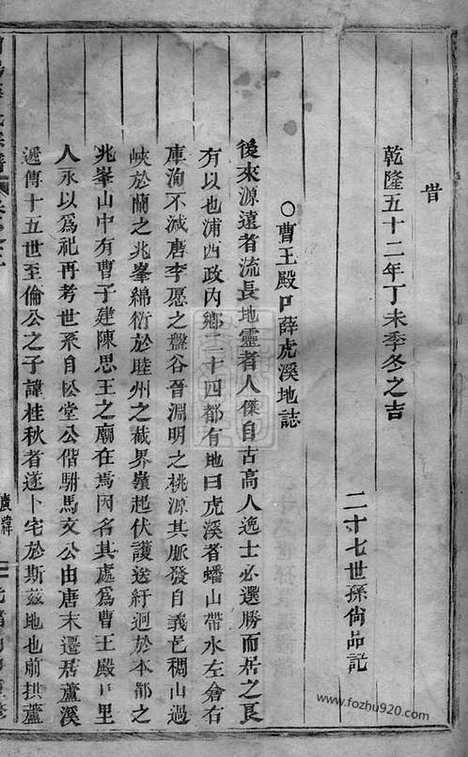 旹
乾隆五十二年丁未季冬之吉
二十七世孫尙品記
○曹王殿戸薛虎溪地誌
後來源遠者流長地靈者人傑自古高人逸士必選勝而居之良
有以也浦西政內鄉二十四都有地曰虎溪者蟠山帶水左倉右
庫洵不減唐李愿之盤谷晉淵明之桃源其脈發自義邑稠山過
峽於蘭之兆峯綿衍於睦州之截界嶺起伏護送紆迴於本都之
兆峯山中有曹子建陳思王之廟在焉因名其處爲曹王殿戸里
人永以爲祀再考世系自松堂公偕駙馬文公由唐末遷居蘆溪
遞傳十五世至倫公之子諱桂秋者遂卜宅於斯茲地也前拱蘆
www.fozhu920.com